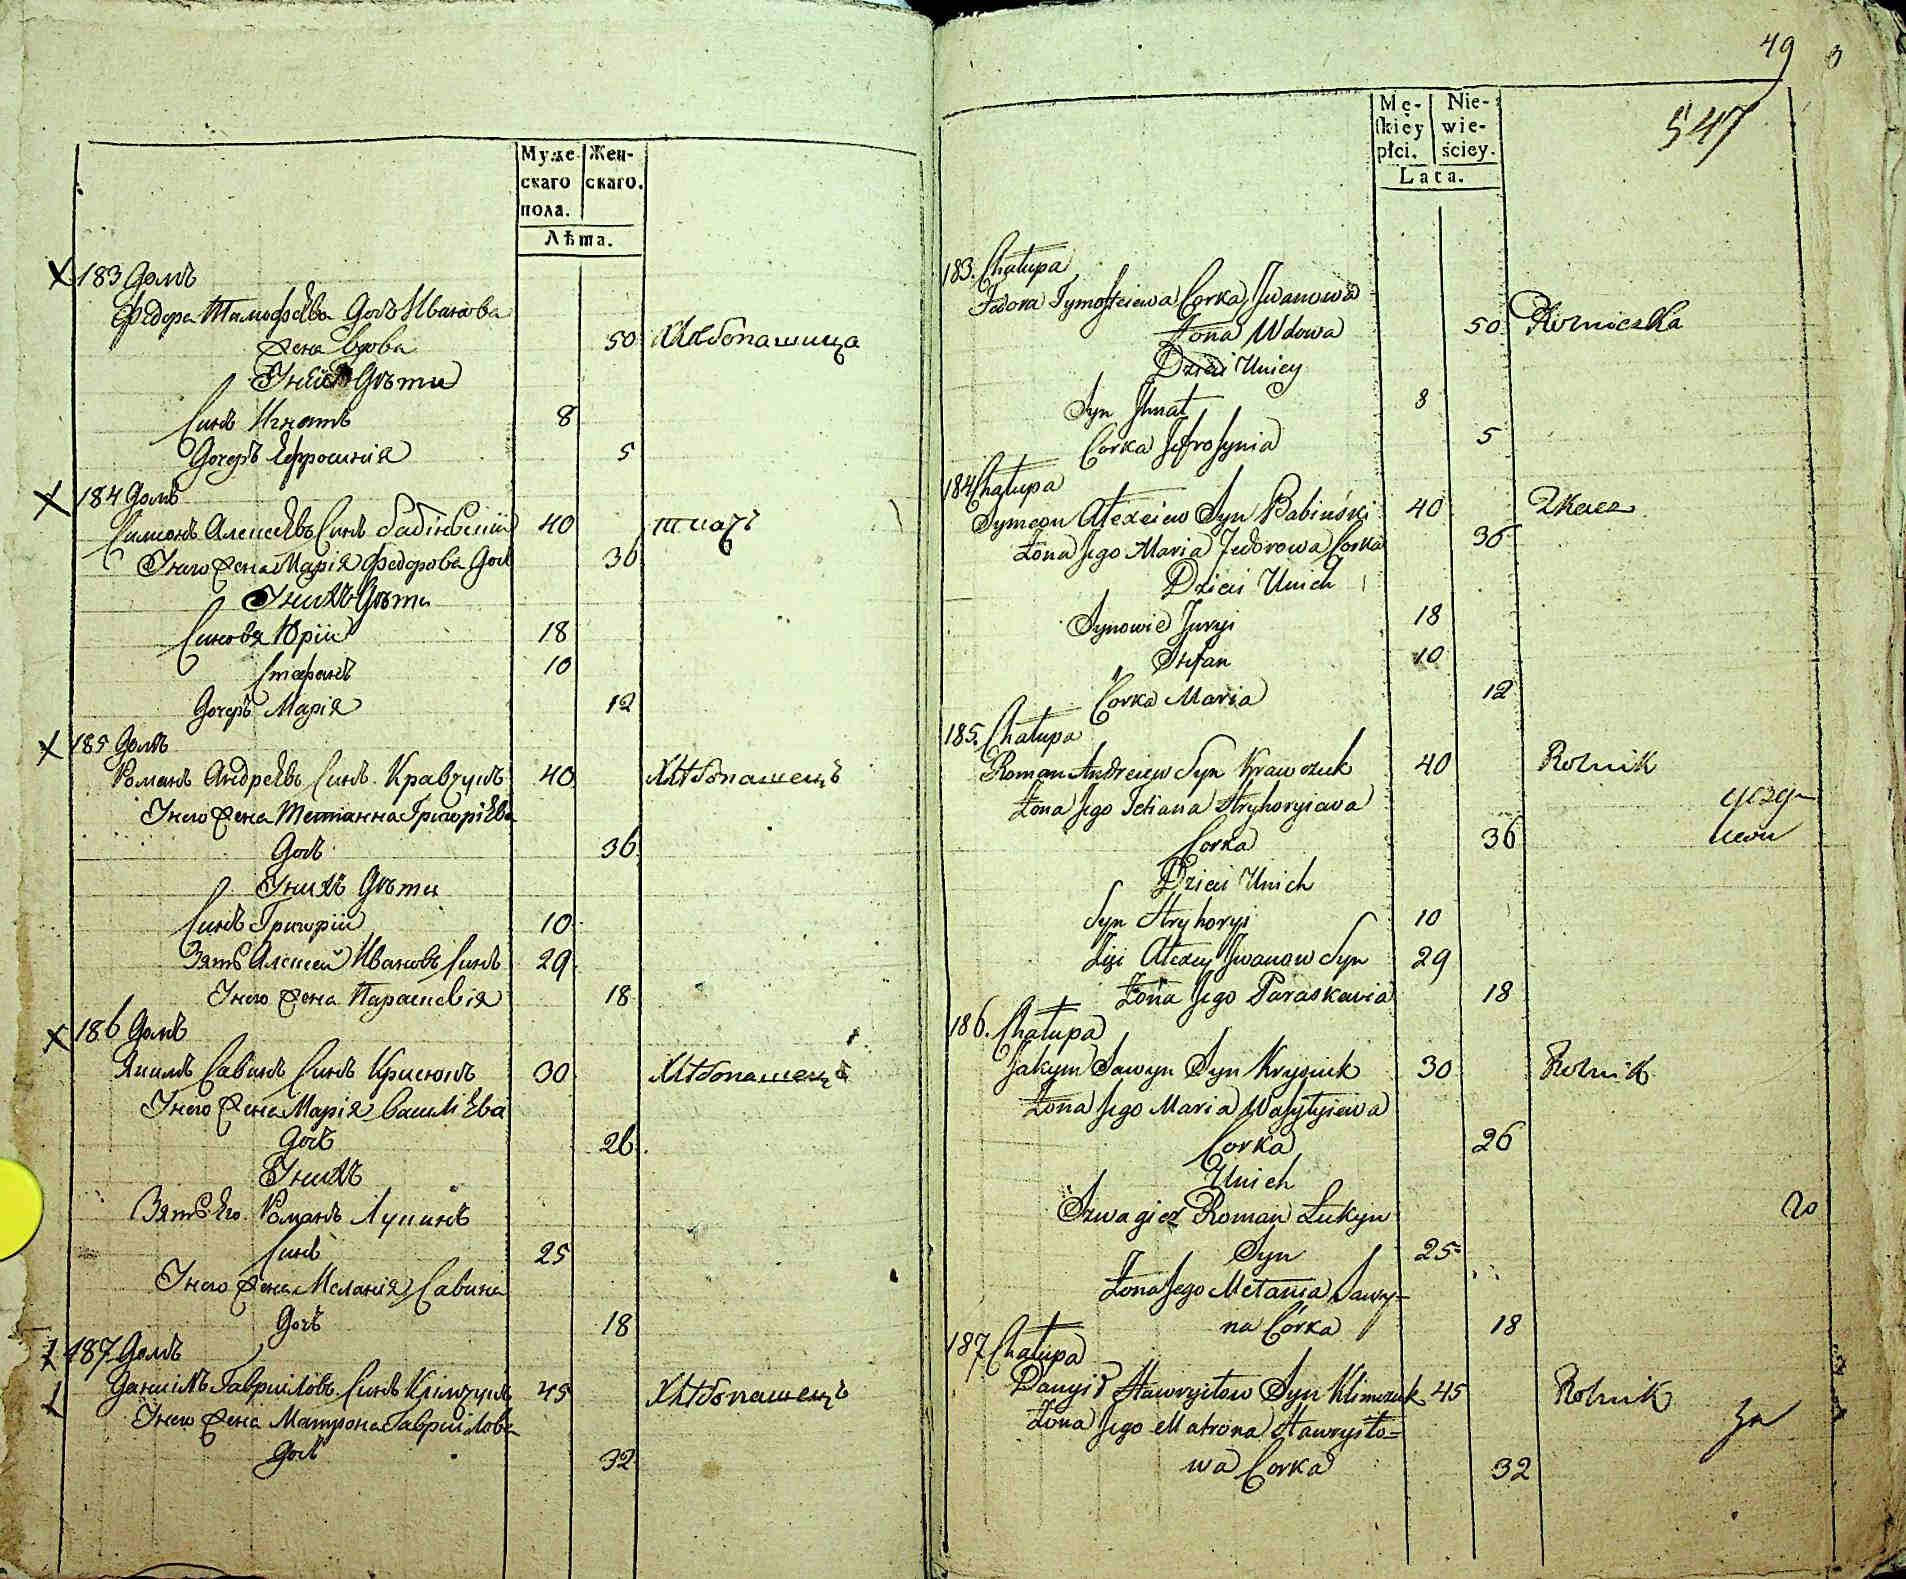 Муже-
скаго
пола.
Жен-
скаго.
Лѣта.
183 Домъ
Федора Тимофѣева Дочь Иванова
Жена Вдова 50 Хлѣбопашица
У нией Дѣти
Синъ Игнатъ 8
Дочеръ Ефросинія 5
184 Домъ
Симонъ Алексѣевъ Синъ Бабінскій 40 ткачъ
У него Жена Марія Федорова Доч 36
У нихъ Дѣти
Синовя Юрій 18
Стефанъ 10
Дочеръ Марія 12
185 Домъ
Романъ Андреѣвъ Синъ Кравчукъ 40 Хлѣбопашецъ
У него Жена Тетианна Григоріева
Дочь 36
У нихъ Дѣти
Синъ Григорій 10
Зять Алексей Ивановъ Синъ 29
У него Жена Параскевія 18
186 Домъ
Якимъ Савинъ Синъ Крисюкъ 30 Хлѣбопашецъ
У него Жена Марія Василіева
Дочь 26
У нихъ
Зять Его Романъ Лукинъ
Синъ 25
У него Жена Меланія Савина
Дочь 18
187 Домъ
Даниілъ Гавриіловъ Синъ Клімчукъ 45 Хлѣбопашецъ
У него Жена Матрона Гавриілова
Дочь 32
49
547
Mę-
skiey
płci.
Nie-
wie-
ściey.
Lata.
183. Chałupa
Fedora Tymofieiewa Corka Iwanowa
Żona Wdowa 50 Rolniczka
Dzieci Uniey
Syn Ihnat 8
Corka Jefrosynia 5
184 Chałupa
Symeon Alexeiew Syn Babiński 40 Tkacz
Żona Jego Maria Fedorowa Corka 36
Dzieci Unich
Synowie Juryi 18
Stefan 10
Corka Maria 12
185. Chałupa
Roman Andreiew Syn Krawczuk 40 Rolnik
Żona Jego Tetiana Hryhoryiewa
Corka 36
Dzieci Unich
Syn Hryhoryi 10
Zięć Alexey Iwanow Syn 29
Żona Jego Paraskewia 18
186. Chałupa
Jakym Sawyn Syn Krysiuk 30 Rolnik
Żona Jego Maria Wasylyiewa
Corka 26
Unich
Szwagier Roman Łukyn
Syn 25
Żona Jego Melania Sawy=
na Córka 18
187 Chałupa
Danyił Hawryiłow Syn Klimczuk 45 Rolnik
Żona Jego Matrona Hawryiło=
wa Corka 32